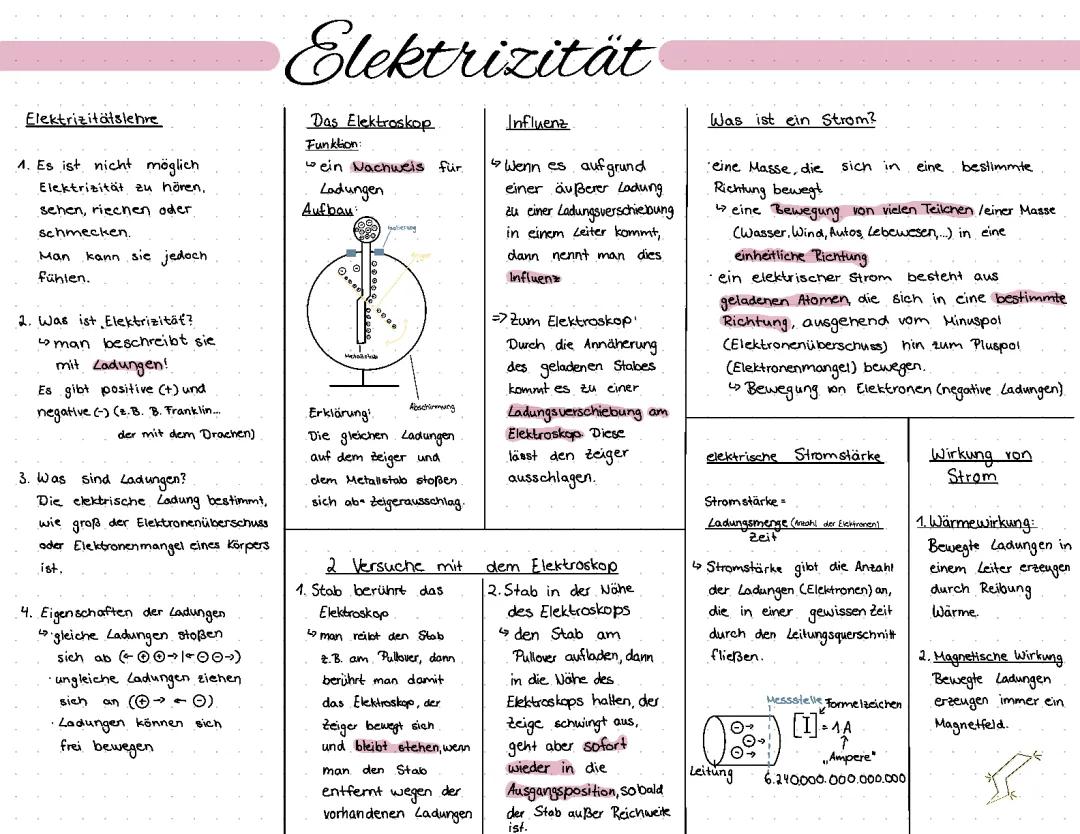 Elektrizität
Elektrizitätslehre
1. Es ist nicht möglich
Elektrizität zu hören,
sehen, riechen oder
schmecken.
Man kann sie jedoch
fühlen.
2. Was ist Elektrizität?
↳ man beschreibt sie
mit Ladungen!
Es gibt positive (+) und
negative (-) (z.B. B. Franklin...
der mit dem Drachen)
3. Was sind Ladungen?
Die elektrische Ladung bestimmt,
wie groß der Elektronenüberschuss
oder Elektronenmangel eines Körpers
ist.
4. Eigenschaften der Ladungen
↳ · gleiche Ladungen stoßen
sich ab (← ⊕ ⊕ → | ← ⊖ ⊖ →)
· ungleiche Ladungen ziehen
sich an (⊕ → ← ⊖)
· Ladungen können sich
frei bewegen
Das Elektroskop
Funktion:
↳ ein Nachweis für
Ladungen
Aufbau:
Isolierung
Zeiger
Metallstab
Abschirmung
Erklärung:
Die gleichen Ladungen
auf dem Zeiger und
dem Metallstab stoßen
sich ab = Zeigerausschlag.
Influenz
↳ Wenn es aufgrund
einer äußerer Ladung
zu einer Ladungsverschiebung
in einem Leiter kommt,
dann nennt man dies
Influenz
=> Zum Elektroskop:
Durch die Annäherung
des geladenen Stabes
kommt es zu einer
Ladungsverschiebung am
Elektroskop. Diese
lässt den Zeiger
ausschlagen.
2 Versuche mit dem Elektroskop
1. Stab berührt das
Elektroskop
↳ man reibt den Stab
z.B. am Pullover, dann
berührt man damit
das Elektroskop, der
Zeiger bewegt sich
und bleibt stehen, wenn
man den Stab
entfernt wegen der
vorhandenen Ladungen
2. Stab in der Nähe
des Elektroskops
↳ den Stab am
Pullover aufladen, dann
in die Nähe des
Elektroskops halten, der
Zeige schwingt aus,
geht aber sofort
wieder in die
Ausgangsposition, sobald
der Stab außer Reichweite
ist.
Was ist ein Strom?
· eine Masse, die sich in eine bestimmte
Richtung bewegt
↳ eine Bewegung von vielen Teilchen / einer Masse
(Wasser, Wind, Autos, Lebewesen,...) in eine
einheitliche Richtung
· ein elektrischer Strom besteht aus
geladenen Atomen, die sich in eine bestimmte
Richtung, ausgehend vom Minuspol
(Elektronenüberschuss) hin zum Pluspol
(Elektronenmangel) bewegen.
↳ Bewegung von Elektronen (negative Ladungen)
elektrische Stromstärke
Stromstärke =
Ladungsmenge (Anzahl der Elektronen)
Zeit
↳ Stromstärke gibt die Anzahl
der Ladungen (Elektronen) an,
die in einer gewissen Zeit
durch den Leitungsquerschnitt
fließen.
Messstelle
Formelzeichen
[I] = 1 A
„Ampere"
Leitung
6.240.000.000.000.000
Wirkung von
Strom
1. Wärmewirkung:
Bewegte Ladungen in
einem Leiter erzeugen
durch Reibung
Wärme.
2. Magnetische Wirkung
Bewegte Ladungen
erzeugen immer ein
Magnetfeld.